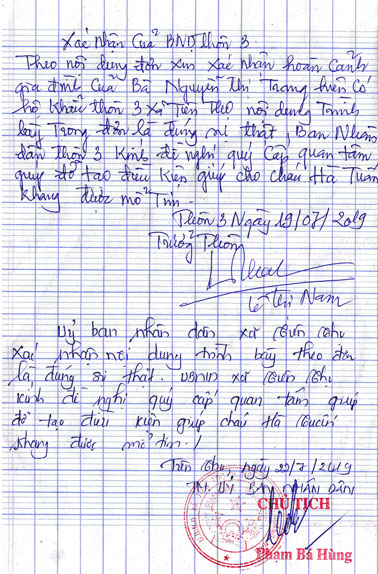 Xác nhận của BND thôn 3.
Theo nội dung đơn xin xác nhận hoàn cảnh
gia đình của Bà Nguyễn Thị Trang hiện có
hộ khẩu thôn 3 xã Tiên Thọ nội dung trình
bày trong đơn là đúng sự thật, Ban Nhân
dân thôn 3 kính đề nghị quý cấp quan tâm
giúp đỡ tạo điều kiện giúp cho cháu Hà Tuấn
Khang được mổ tim.
Thôn 3 Ngày 19/07/2019
Trưởng Thôn
Lê Thị Nam
Uỷ ban nhân dân xã Tiên Thọ
xác nhận nội dung trình bày theo đơn
là đúng sự thật. UBND xã Tiên Thọ
kính đề nghị quý cấp quan tâm giúp
đỡ tạo điều kiện giúp cháu Hà Tuấn
Khang được mổ tim./
Tiên Thọ, ngày 22/7/2019
TM. UỶ BAN NHÂN DÂN
CHỦ TỊCH
Phạm Bá Hùng